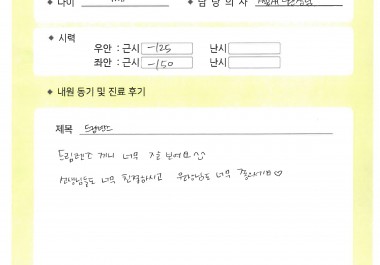 ◆ 나이 ◆ 담당의사
◆ 시력
우안 : 근시 -125 난시
좌안 : 근시 -150 난시
◆ 내원 동기 및 진료 후기
제목 드림렌즈
드림렌즈 끼니 너무 잘 보여요
선생님들도 너무 친절하시고 원장님도 너무 좋으세요♡